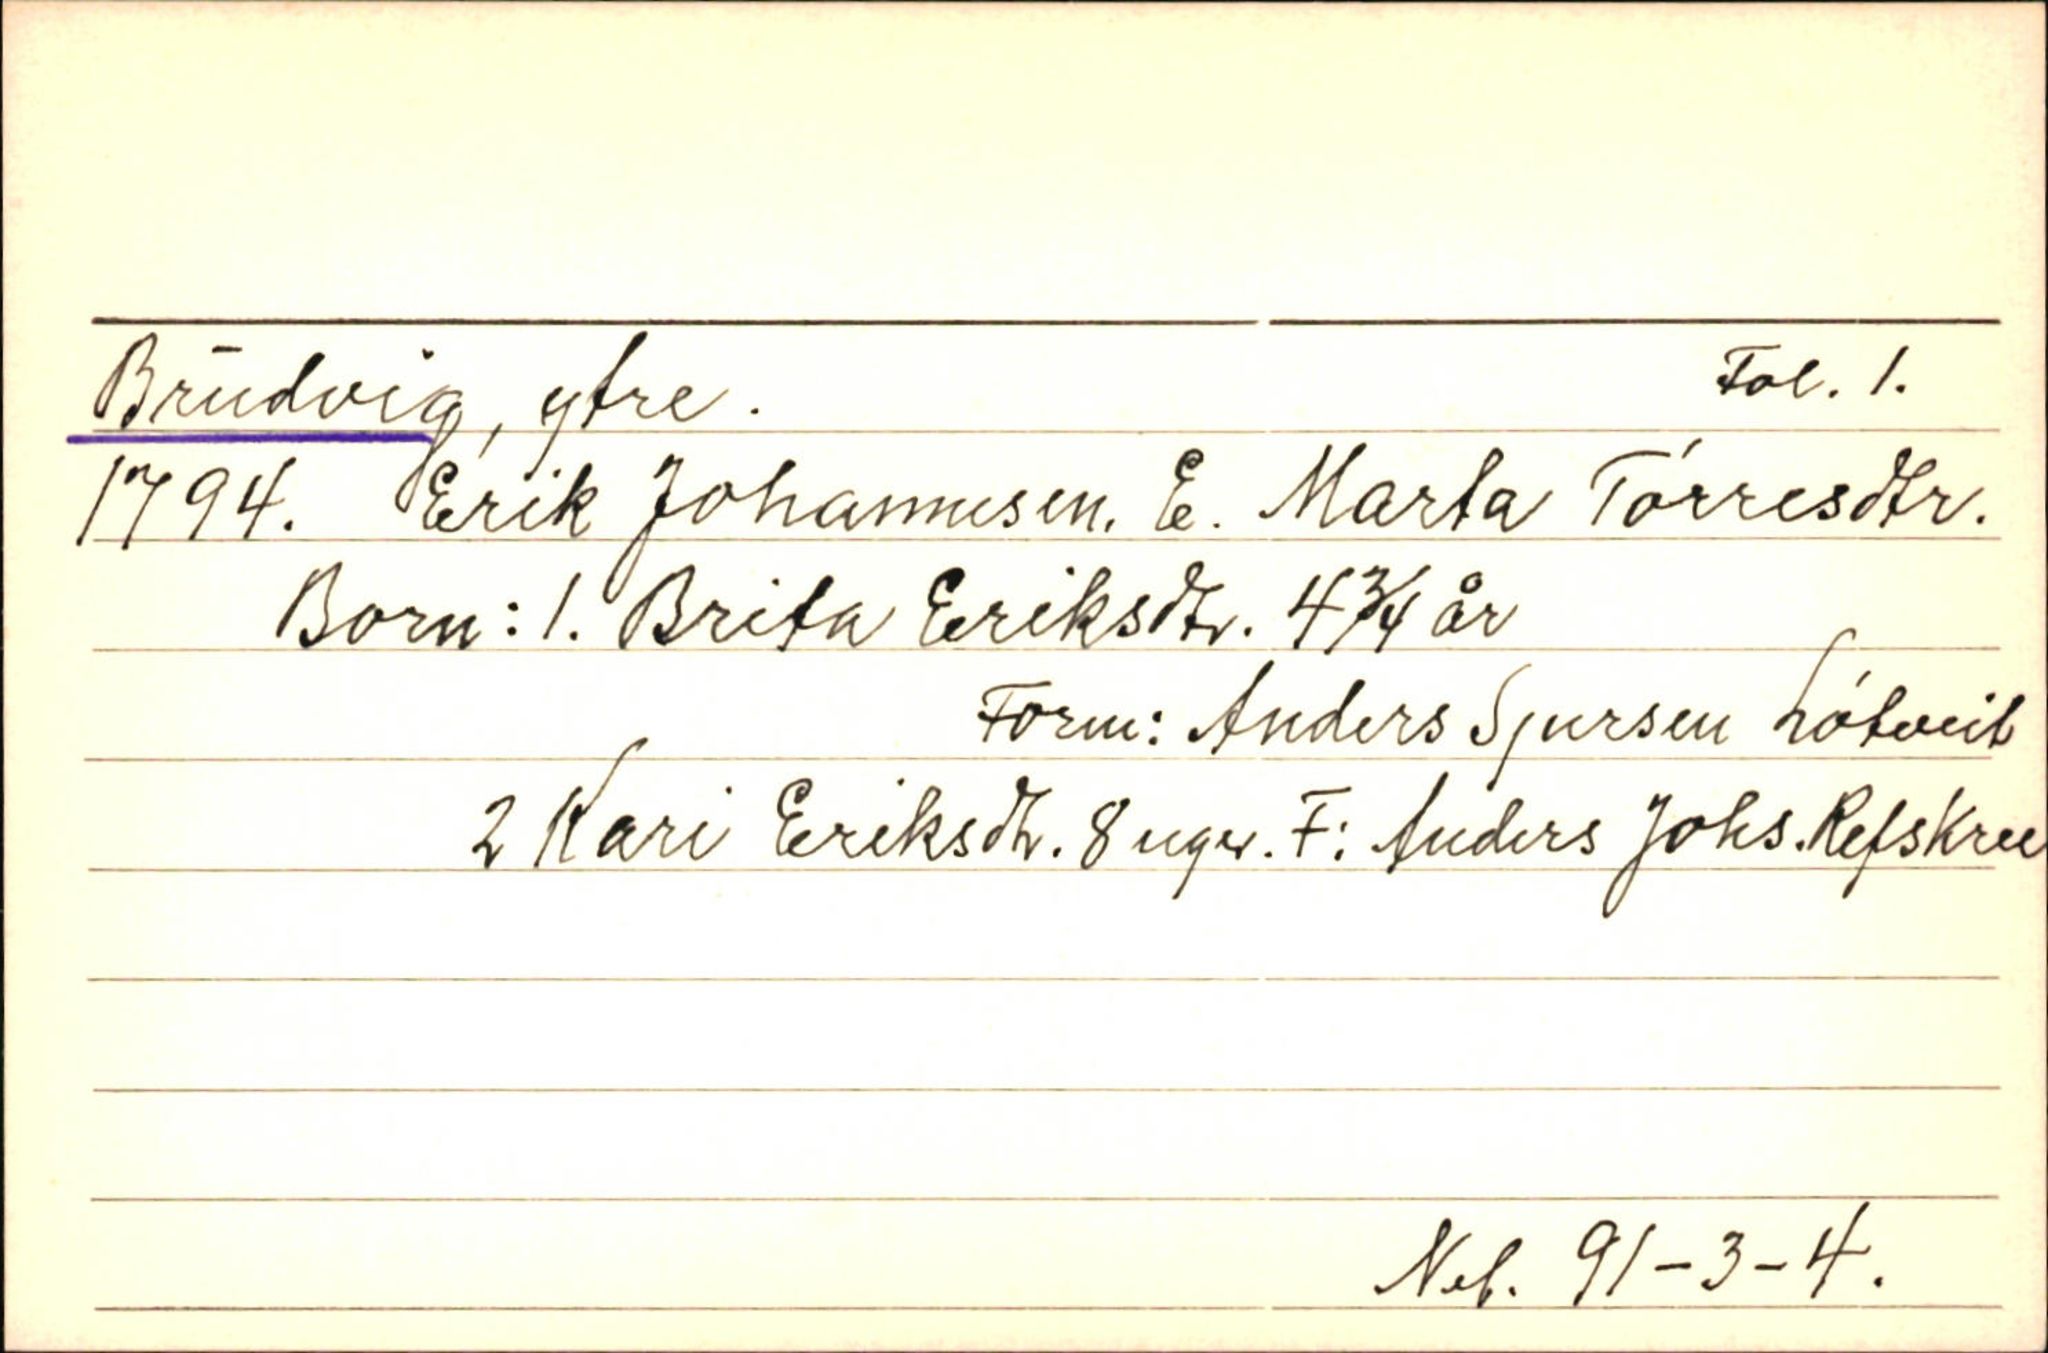 Brūdvig, ytre. Fol. 1.
1794. Erik Johannesen. E. Marta Tórresdtr.
Born: 1. Brita Eriksdtr. 4 3/4 år
Form: Anders Sjursen Lótveit
2 Kari Eriksdtr. 8 uger. F: Anders Johs. Refskree
Net. 91-3-4.